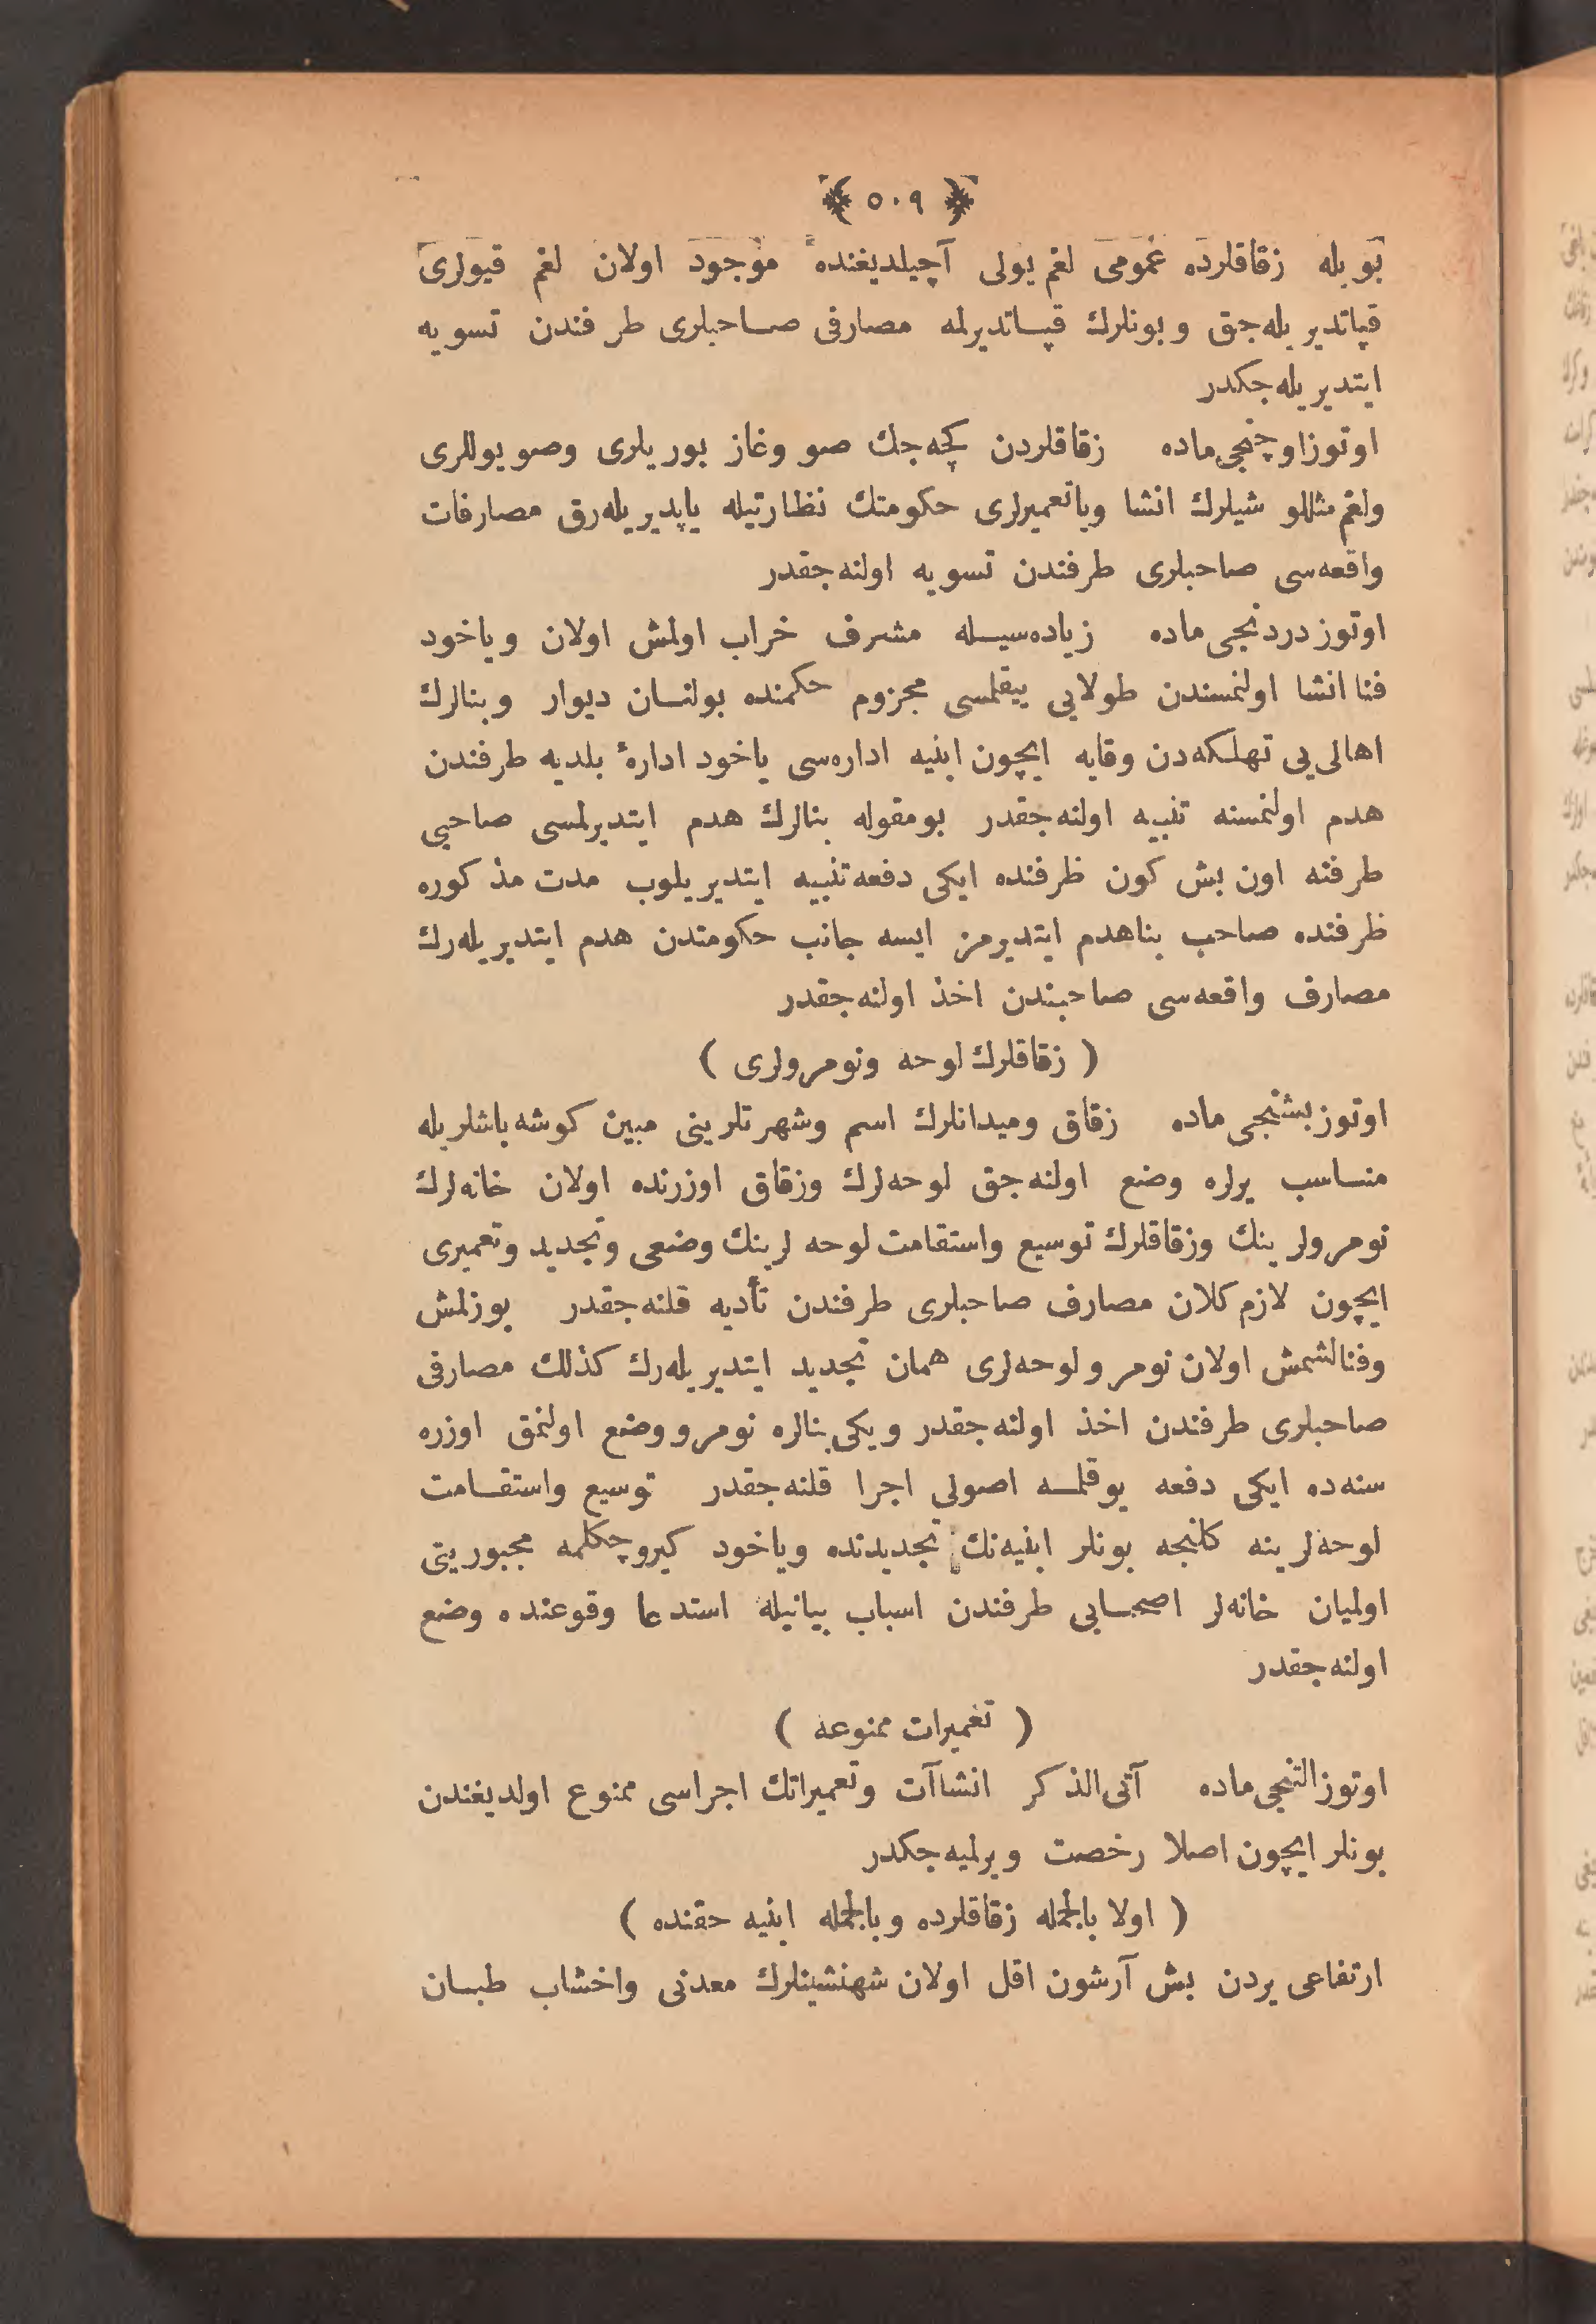 ٥٠٩
بويله زقاقلرده عمومى لغم يولى آچيلديغنده موجود اولان لغم قيولرى
قپاتديريله‌جق وبونلرك قپاتديرلمه مصارفى صاحبلرى طرفندن تسويه
ايتديريله‌جكدر
اوتوزاوچنجى ماده زقاقلردن كچه‌جك صو وغاز بوريلرى وصو يوللرى
ولغم مثللو شيلرك انشا وياتعميرلرى حكومتك نظارتيله ياپديريله‌رق مصارفات
واقعه‌سى صاحبلرى طرفندن تسويه اولنه‌جقدر
اوتوز دردنجى ماده زياده‌سيله مشرف خراب اولمش اولان وياخود
فنا انشا اولنمسندن طولايى ييقلمسى مجزوم حكمنده بولنان ديوار وبنالرك
اهالى‌يى تهلكه‌دن وقايه ايچون ابنيه اداره‌سى ياخود ادارهٔ بلديه طرفندن
هدم اولنمسنه تنبيه اولنه‌جقدر بومقوله بنالرك هدم ايتديرلمسى صاحبى
طرفنه اون بش كون ظرفنده ايكى دفعه تنبيه ايتديريلوب مدت مذكوره
ظرفنده صاحب بناهدم ايتديرمز ايسه جانب حكومتدن هدم ايتديريله‌رك
مصارف واقعه‌سى صاحبندن اخذ اولنه‌جقدر
( زقاقلرك لوحه ونومرولرى )
اوتوز بشنجى ماده زقاق وميدانلرك اسم وشهرتلرينى مبين كوشه باشلريله
مناسب يرلره وضع اولنه‌جق لوحه‌لرك وزقاق اوزرنده اولان خانه‌لرك
نومرولرينك وزقاقلرك توسيع واستقامت لوحه لرينك وضعى وتجديد وتعميرى
ايچون لازم كلان مصارف صاحبلرى طرفندن تأديه قلنه‌جقدر بوزلمش
وفنالشمش اولان نومرو لوحه‌لرى همان تجديد ايتديريله‌رك كذلك مصارفى
صاحبلرى طرفندن اخذ اولنه‌جقدر ويكى بنالره نومرو وضع اولنمق اوزره
سنه‌ده ايكى دفعه يوقلمه اصولى اجرا قلنه‌جقدر توسيع واستقامت
لوحه‌لرينه كلنجه بونلر ابنيه‌نك تجديدنده وياخود كيروچكلمه مجبوريتى
اولميان خانه‌لر اصحابى طرفندن اسباب بيانيله استدعا وقوعنده وضع
اولنه‌جقدر
( تعميرات ممنوعه )
اوتوز التنجى ماده آتى‌الذكر انشاآت وتعميراتك اجراسى ممنوع اولديغندن
بونلر ايچون اصلا رخصت ويرلميه‌جكدر
( اولا بالجمله زقاقلرده وبالجمله ابنيه حقنده )
ارتفاعى يردن بش آرشون اقل اولان شهنشينلرك معدنى واخشاب طبان